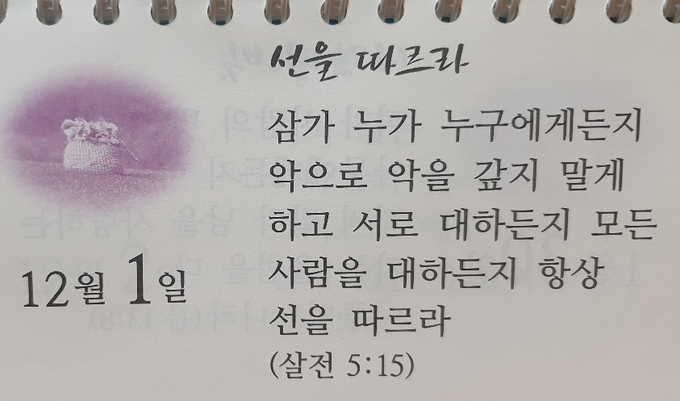 선을 따르라
삼가 누가 누구에게든지
악으로 악을 갚지 말게
하고 서로 대하든지 모든
사람을 대하든지 항상
선을 따르라
(살전 5:15)
12월 1일